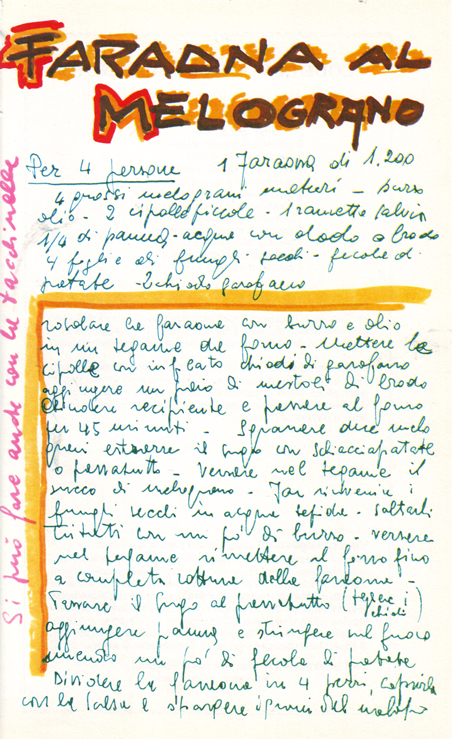 FARAONA AL
MELOGRANO
Per 4 persone 1 Faraona di 1,200
4 grossi melograni maturi - burro
olio - 2 cipolle piccole - 1 rametto salvia
1/4 di panna - acqua con dado o brodo
4 foglie di funghi secchi - fecola di
patate - 2 chiodi garofano
rosolare la faraona con burro e olio
in un tegame da forno - mettere le
cipolle con infilato chiodi di garofano
aggiungere un paio di mestoli di brodo
chiudere recipiente e passare al forno
per 45 minuti - Sgranare due melo
grani estrarre il sugo con schiacciapatate
o passatutto - versare nel tegame il
succo di melograno - Far rinvenire i
funghi secchi in acqua tepida - saltarli
tritati con un pò di burro - versare
nel tegame rimettere al forno fino
a completa cottura della faraona -
Passare il sugo al passatutto (togliere i chiodi)
aggiungere panna e stringere sul fuoco
unendo un pò di fecola di patate
Dividere la faraona in 4 pezzi, coprirla
con la salsa e spargere i grani del
Si può fare anche con la tacchinella